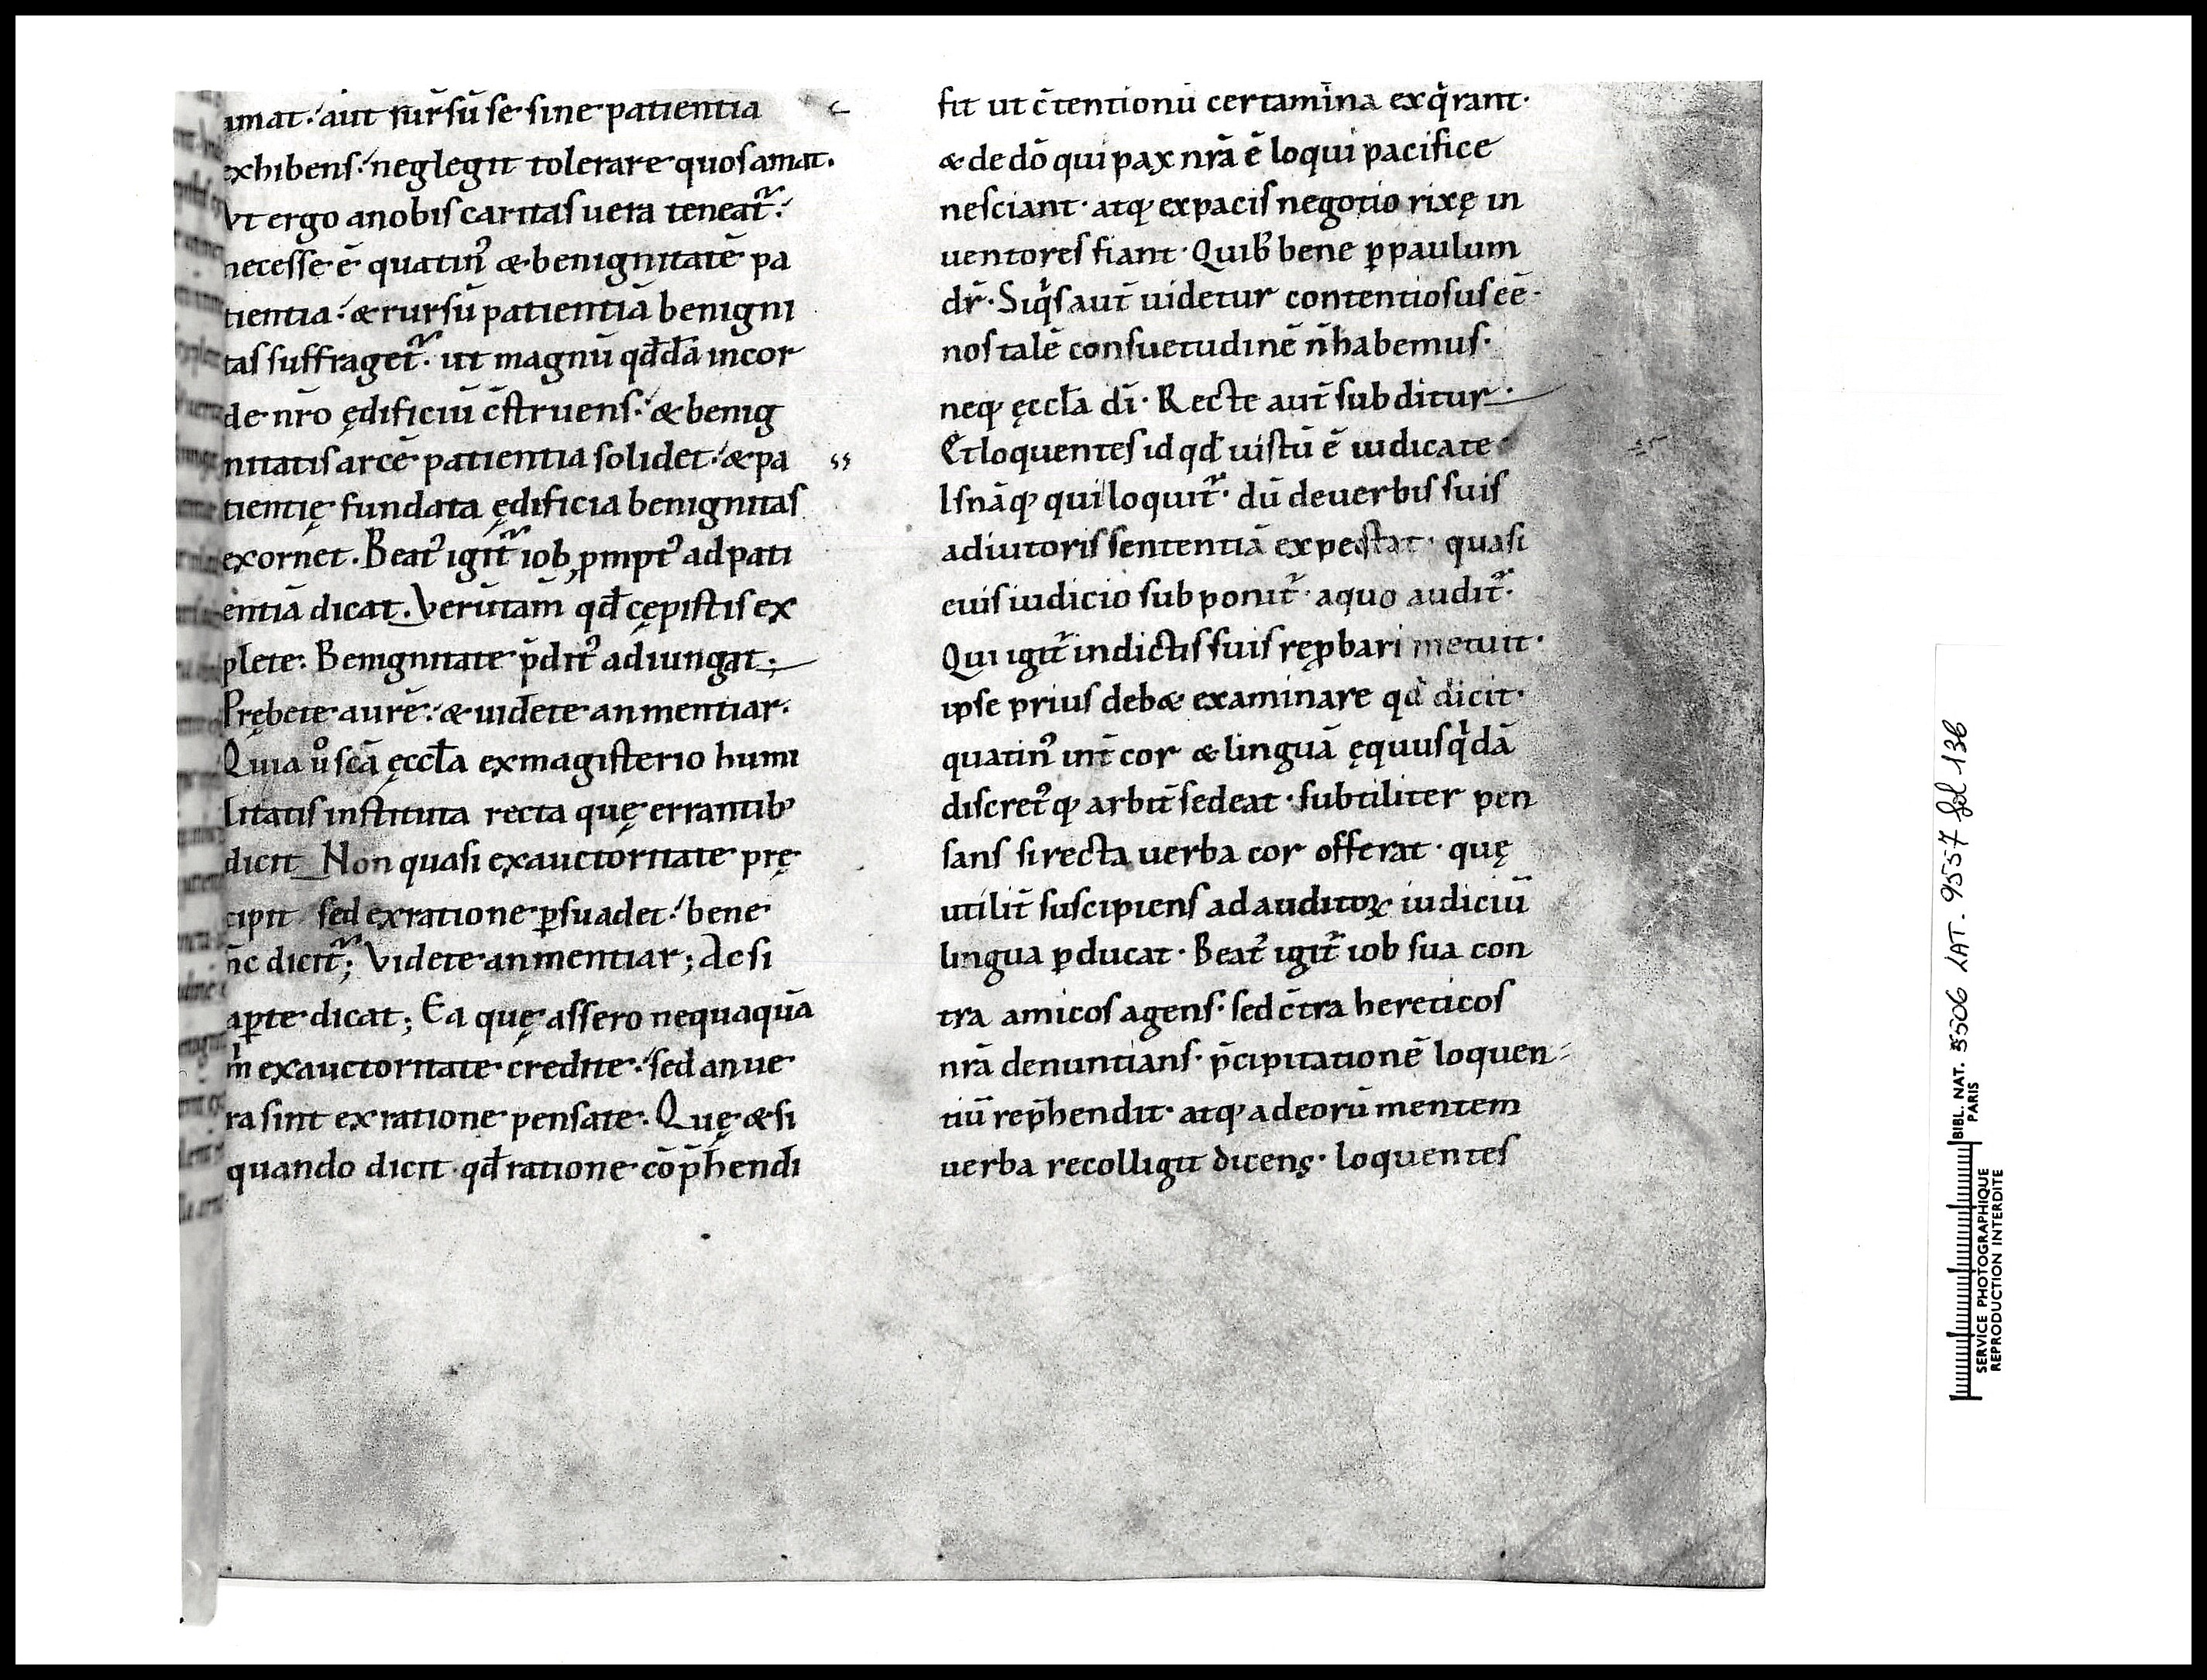 amat. aut rursū se sine patientia
exhibens. neglegit tolerare quos amat.
Vt ergo a nobis caritas uera teneat᷑.
necesse ē quatin᾽ & benignitatē pa
tientia. & rursū patientiā benigni
tas suffraget᷑. ut magnū qđdā in cor
de nr̄o ędificiū c̄struens. & benig
nitatis arcē patientia solidet. & pa
tientię fundata ędificia benignitas
exornet. Beat᾽ igit᷑ iob, ꝓmpt᾽ ad pati
entiā dicat. Verūtam̄ qđ cępistis ex
plete. Benignitate p̄dit᾽ adiungat;
Prębete aurē. & uidete an mentiar.
Quia uͦ scā ęccłа ex magisterio humi
litatis instituta recta quę errantib᾽
dicit Non quasi ex auctoritate prę
cipit sed ex ratione ꝑsuadet. bene
nc̄ dicit᷑; Videte an mentiar; Ac si
aꝑte dicat; Ea quę assero nequaquā
m̍ ex auctoritate credite. sed an ue
ra sint ex ratione pensate. Quę & si
quando dicit qđ ratione cōp̄hendi
fit ut c̄tentionū certamina exq̍rant.
& de dō qui pax nr̄a ē loqui pacifice
nesciant. atq; ex pacis negotio rixę in
uentores fiant. Quib᾽ bene ꝑ paulum
dr̄. Siq̍s aut̄ uidetur contentiosus eē.
nos talē consuetudinē n̄ habemus.
neq; ęccła dī. Recte aut̄ subditur.
Et loquentes id qđ uistū ē iudicate
Is nāq; qui loquit᷑. dū de uerbis suis
adiutoris sententiā expectat. quasi
euis iudicio subponit᷑. a quo audit᷑.
Qui igit᷑ in dictis suis reꝓbari metuit.
ipse prius deb& examinare qđ dicit.
quatin᾽ int̄ cor & linguā ęquus q̍dā
discret᾽q; arbit̄ sedeat. subtiliter pen
sans si recta uerba cor offerat. quę
utilit̄ suscipiens ad auditoꝝ iudiciū
lingua ꝓducat. Beat᾽ igit᷑ iob sua con
tra amicos agens. sed c̄tra hereticos
nr̄a denuntians. p̄cipitationē loquen
tiū rep̄hendit. atq; ad eorū mentem
uerba recolligit dicens. loquentes
BIBL. NAT. 5506 LAT. 9557 fol 136
PARIS
SERVICE PHOTOGRAPHIQUE
REPRODUCTION INTERDITE